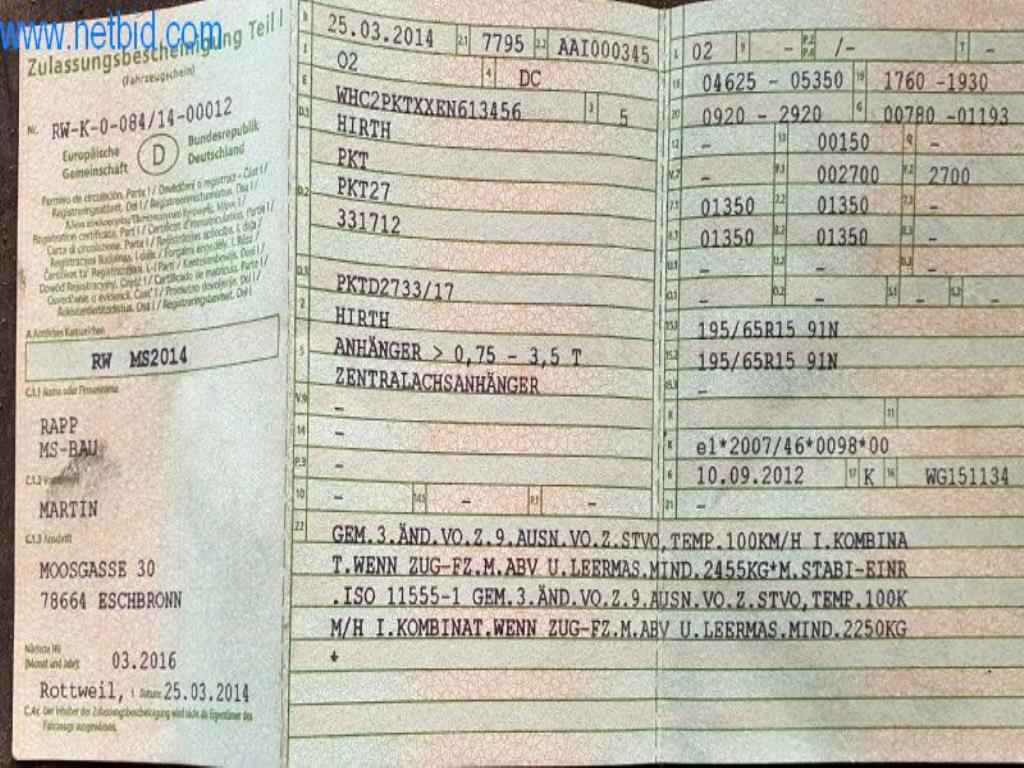 www.netbid.com
Zulassungsbescheinigung Teil I
(Fahrzeugschein)
Nr. RW-K-0-084/14-00012
Europäische Gemeinschaft
D
Bundesrepublik Deutschland
Permiso de circulación. Parte I / Osvědčení o registraci – Část I /
Registreringsattest. Del I / Registreerimistunnistus. Osa I /
Registration certificate. Part I / Certificat d'immatriculation. Partie I /
Carta di circolazione. Parte I / Reģistrācijas apliecība. I. daļa /
A Amtliches Kennzeichen
RW MS2014
C.1.1 Name oder Firmenname
RAPP
MS-BAU
C.1.2 Vorname(n)
MARTIN
C.1.3 Anschrift
MOOSGASSE 30
78664 ESCHBRONN
Nächste HU
(Monat und Jahr) 03.2016
Rottweil, Datum 25.03.2014
C.4c Der Inhaber der Zulassungsbescheinigung wird nicht als Eigentümer des
Fahrzeugs ausgewiesen.
B 25.03.2014 2.1 7795 2.2 AAI000345
J 02 4 DC
E WHC2PKTXXEN613456 3 5
D.1 HIRTH
PKT
D.2 PKT27
331712
D.3 PKTD2733/17
2 HIRTH
5 ANHÄNGER > 0,75 - 3,5 T
ZENTRALACHSANHÄNGER
V.9 -
14 -
P.3 -
10 - 14.1 - P.1 -
L 02 9 - P.2 P.4 /- T -
18 04625 - 05350 19 1760 -1930
20 0920 - 2920 G 00780 -01193
12 - 13 00150 Q -
V.7 - F.1 002700 F.2 2700
7.1 01350 7.2 01350 7.3 -
8.1 01350 8.2 01350 8.3 -
U.1 - U.2 - U.3 -
O.1 - O.2 - S.1 - S.2 -
15.1 195/65R15 91N
15.2 195/65R15 91N
15.3 -
R 11
K e1*2007/46*0098*00
6 10.09.2012 17 K 16 WG151134
21 -
22 GEM.3.ÄND.VO.Z.9.AUSN.VO.Z.STVO,TEMP.100KM/H I.KOMBINA
T.WENN ZUG-FZ.M.ABV U.LEERMAS.MIND.2455KG*M.STABI-EINR
.ISO 11555-1 GEM.3.ÄND.VO.Z.9.AUSN.VO.Z.STVO,TEMP.100K
M/H I.KOMBINAT.WENN ZUG-FZ.M.ABV U.LEERMAS.MIND.2250KG
*